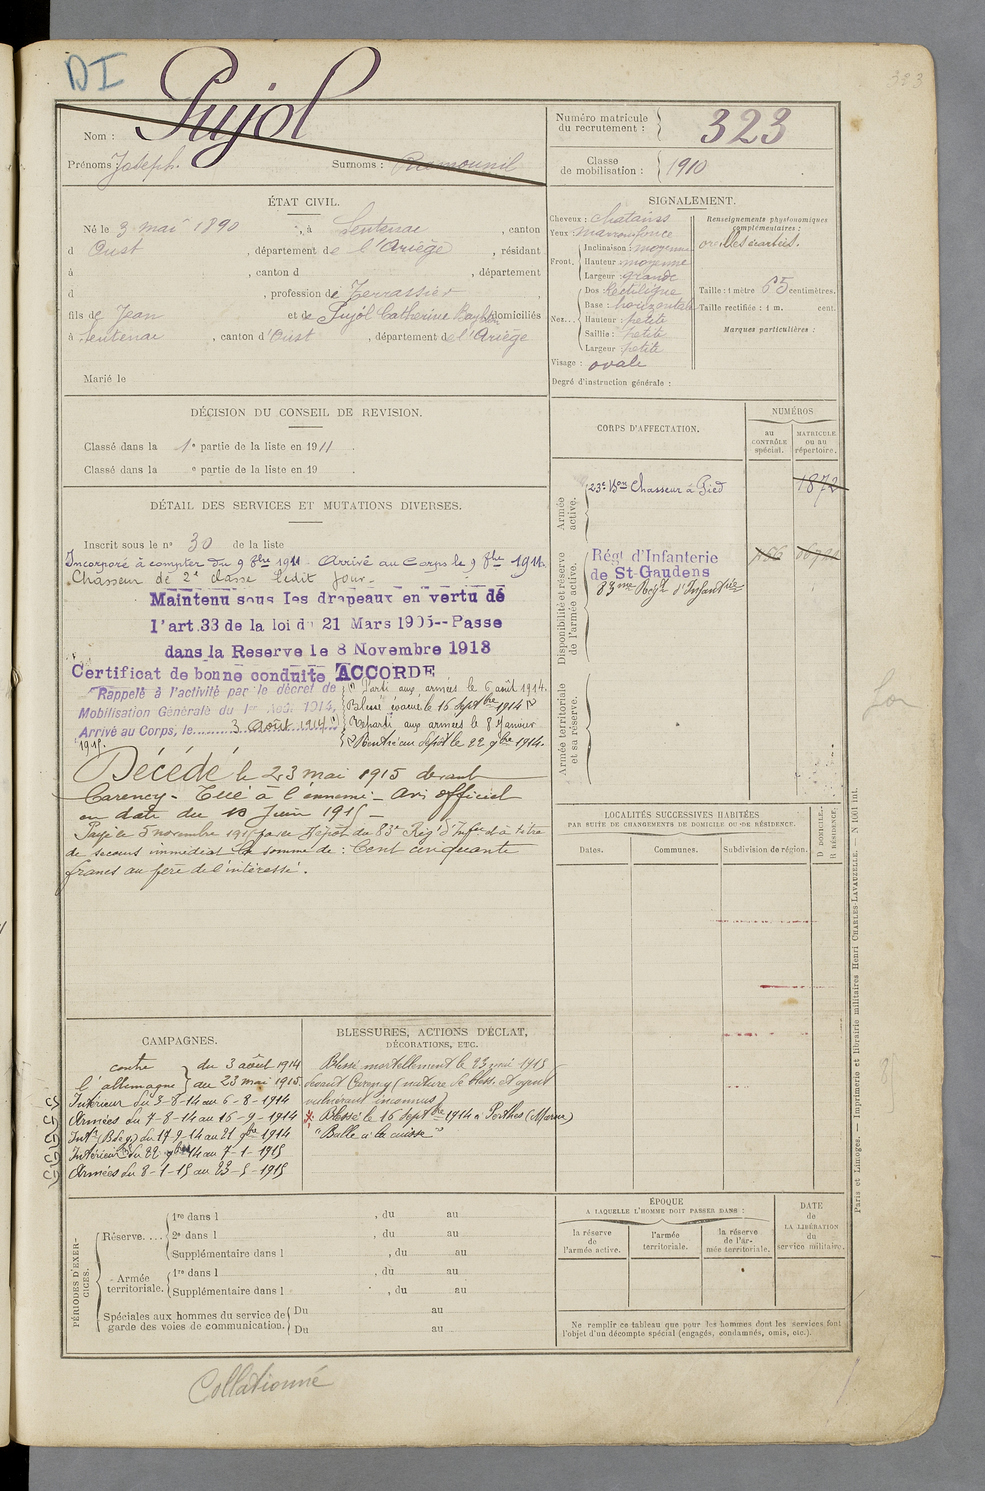 DI
323
Nom : Pujol
Prénoms : Joseph. Surnoms : Ramounil
Numéro matricule du recrutement : 323
Classe de mobilisation : 1910
ÉTAT CIVIL.
Né le 3 mai 1890, à Sentenac, canton
d'Oust, département de l'Ariège, résidant
à , canton d , département
d , profession de Terrassier
fils de Jean et de Pujol Catherine domiciliés
à Sentenac, canton d'Oust, département de l'Ariège
Marié le
SIGNALEMENT.
Cheveux : chatains
Yeux : marron
Front. Inclinaison : moyenne
Hauteur : moyenne
Largeur : grande
Nez... Dos : Rectiligne
Base : horizontale
Hauteur : petite
Saillie : petite
Largeur : petite
Visage : ovale
Renseignements physionomiques complémentaires :
oreilles écartées.
Taille : 1 mètre 65 centimètres.
Taille rectifiée : 1 m. cent.
Marques particulières :
Degré d'instruction générale :
DÉCISION DU CONSEIL DE REVISION.
Classé dans la 1e partie de la liste en 1911.
Classé dans la e partie de la liste en 19 .
DÉTAIL DES SERVICES ET MUTATIONS DIVERSES.
Inscrit sous le n° 30 de la liste
Incorporé à compter du 9 8bre 1911. Arrivé au Corps le 9 8bre 1911.
Chasseur de 2e classe ledit jour.
Maintenu sous les drapeaux en vertu de
l'art. 33 de la loi du 21 Mars 1905--Passe
dans la Reserve le 8 Novembre 1913
Certificat de bonne conduite ACCORDE
Rappelé à l'activité par le décret de
Mobilisation Générale du 1er Août 1914.
Arrivé au Corps, le 3 Août 1914 (1)
(1) Parti aux armées le 6 août 1914.
Blessé évacué le 16 septbre 1914 (2)
Reparti aux armées le 8 Janvier
1915.
(2) Rentré au dépôt le 22 9bre 1914.
Décédé le 23 mai 1915 devant
Carency - Tué à l'ennemi - Avis officiel
en date du 10 Juin 1915 -
Payé le 5 novembre 1915 par le Dépôt du 83e Rég d'Infie à titre
de secours immédiat la somme de : Cent cinquante
francs au père de l'intéressé.
CORPS D'AFFECTATION.
NUMÉROS
au CONTRÔLE spécial.
MATRICULE ou au répertoire.
Armée active.
23e Bon Chasseur à Pied 1872
Disponibilité et réserve de l'armée active.
Régt d'Infanterie
de St-Gaudens
83me Régt d'Infanterie
Armée territoriale et sa réserve.
LOCALITÉS SUCCESSIVES HABITÉES
PAR SUITE DE CHANGEMENTS DE DOMICILE OU DE RÉSIDENCE.
Dates. Communes. Subdivision de région. D DOMICILE. R RÉSIDENCE.
CAMPAGNES.
contre l'allemagne du 3 août 1914
au 23 mai 1915.
Intérieur du 3-8-14 au 6-8-1914
Armées du 7-8-14 au 16-9-1914
Intr (Blsé g) du 17-9-14 au 21 9bre 1914
Intérieur du 22 9bre 14 au 7-1-1915
Armées du 8-1-15 au 23-5-1915
BLESSURES, ACTIONS D'ÉCLAT,
DÉCORATIONS, ETC.
Blessé mortellement le 23 mai 1915
devant Carency (nature de bless. et agent
vulnérant inconnus)
Blessé le 16 septbre 1914 à Perthes (Marne)
"Balle à la cuisse"
PÉRIODES D'EXERCICES.
Réserve.... 1re dans l , du au
2e dans l , du au
Supplémentaire dans l , du au
Armée territoriale. 1re dans l , du au
Supplémentaire dans l , du au
Spéciales aux hommes du service de garde des voies de communication. Du au
Du au
ÉPOQUE
A LAQUELLE L'HOMME DOIT PASSER DANS :
la réserve de l'armée active.
l'armée territoriale.
la réserve de l'armée territoriale.
DATE de LA LIBÉRATION du service militaire.
Ne remplir ce tableau que pour les hommes dont les services font
l'objet d'un décompte spécial (engagés, condamnés, omis, etc.).
Paris et Limoges. — Imprimerie et librairie militaires Henri CHARLES-LAVAUZELLE. — N° 1001 int.
Collationné